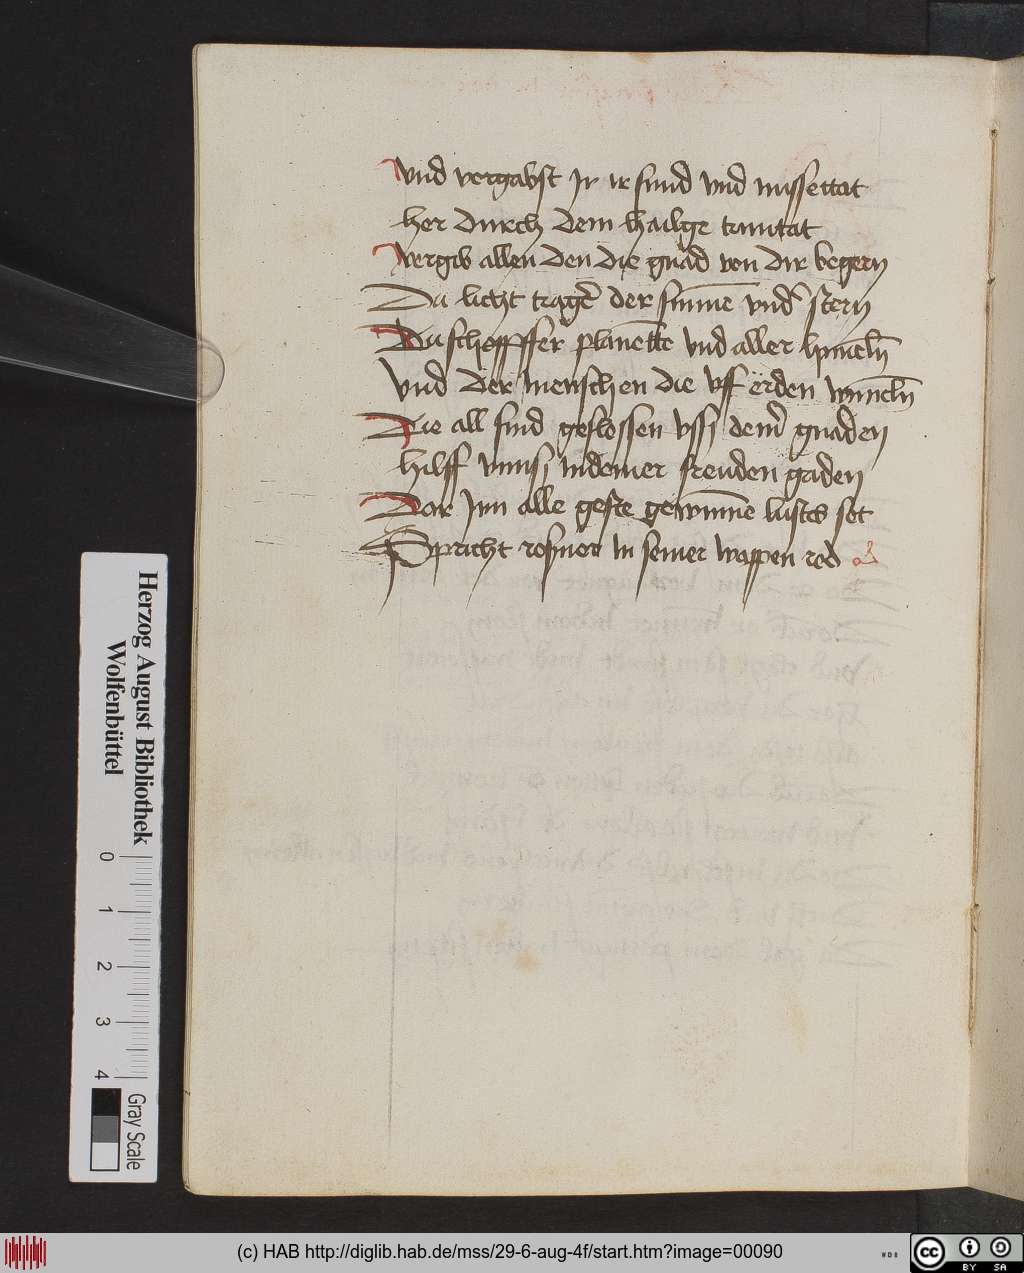 Vnd vergabst Ir ir sund vnd missettat
her durch dein hailge trinitat
Vergib allen den die gnad von dir begern
Du licht trager der sunne vnd stern
Du schopffer planette vnd aller himeln
Vnd der menschen die vff erden wimeln
Die all sind geflossen vss dem gnaden
hilff vnns In deiner freuden gaden
Dar Inn alle geste gewinne lustes set
Spricht rosner in seiner wappen red
Herzog August Bibliothek
Wolfenbüttel
0 1 2 3 4
Gray Scale
(c) HAB http://diglib.hab.de/mss/29-6-aug-4f/start.htm?image=00090
WDB
cc
BY SA